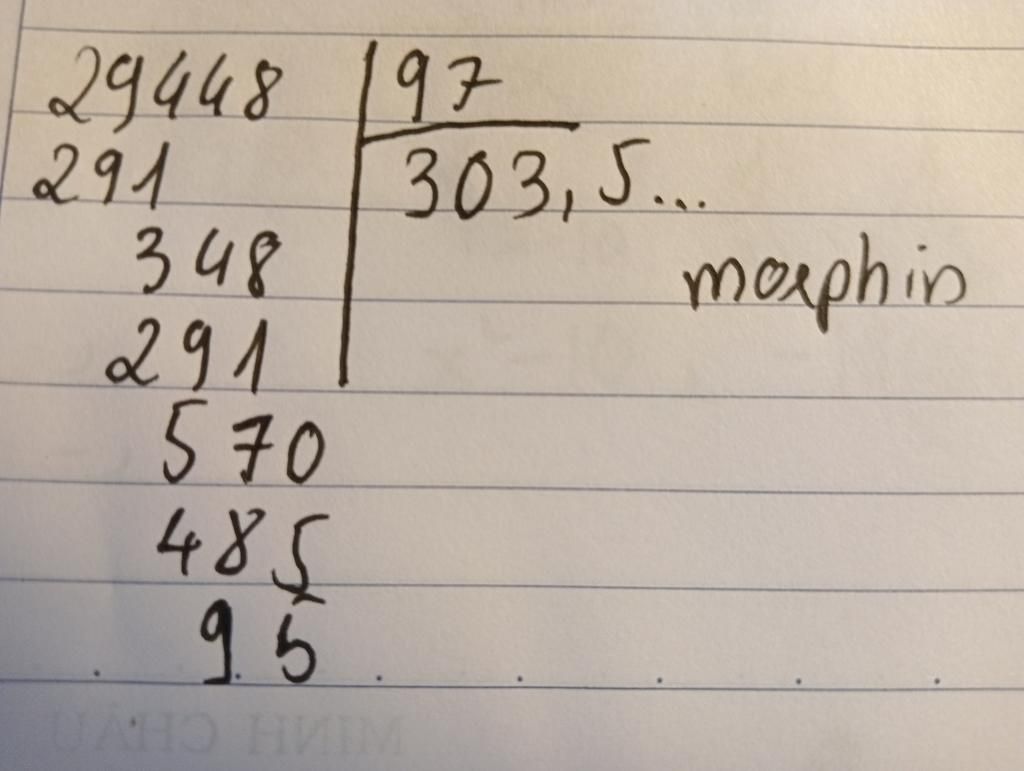 29448 97
291 303,5...
348 morphin
291
570
485
95
MINH CHÂU